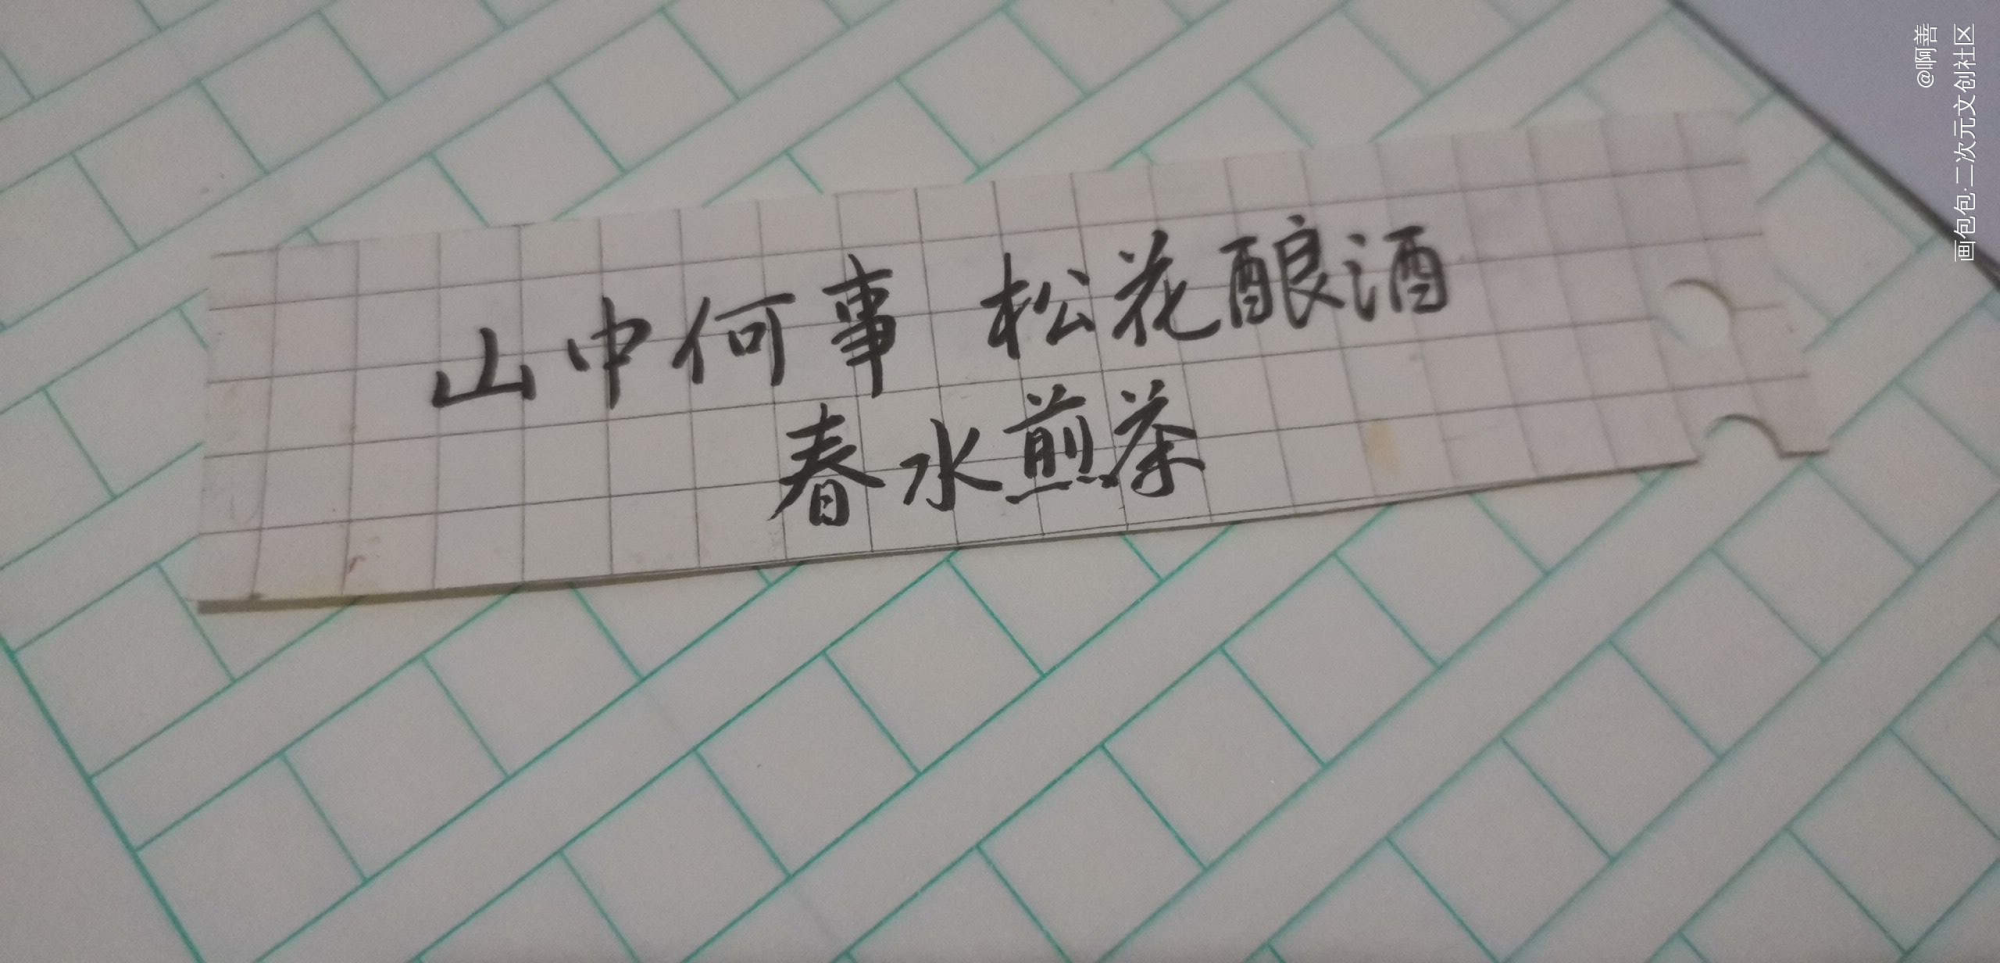 山中何事 松花酿酒
春水煎茶
@啊善
画包包·二次元文创社区